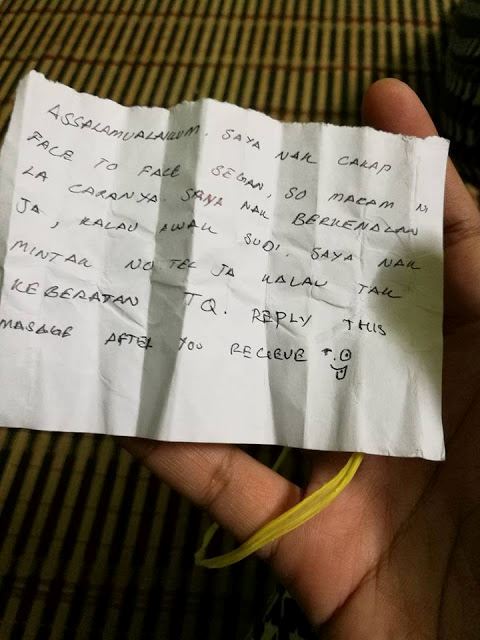 ASSALAMUALAIKUM. SAYA NAK CAKAP
FACE TO FACE SEGAN, SO MACAM NI
LA CARANYA. SAYA NAK BERKENALAN
JA, KALAU AWAK SUDI. SAYA NAK
MINTAK NO TEL JA KALAU TAK
KEBERATAN TQ. REPLY THIS
MASAGE AFTER YOU RECIEVE